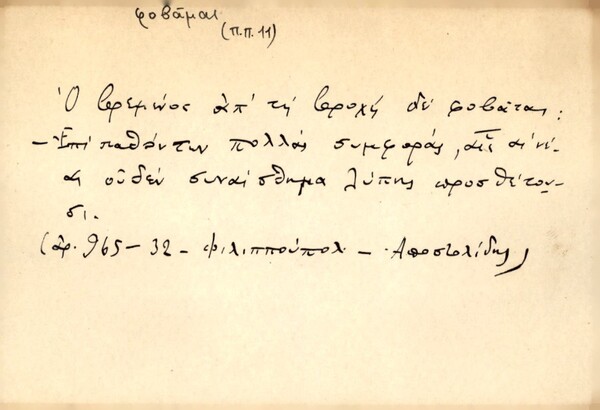 φοβᾶμαι
(Π.Π. 11)
Ὁ βρεμένος ἀπ' τή βροχή δέ φοβᾶται:
– Ἐπί παθόντων πολλάς συμφοράς, αἷς αἱ νέ-
αι οὐδέν συναίσθημα λύπης προσθέτου-
σι.
(ἀρ. 965 – 32 – Φιλιππούπολ – Ἀποστολίδης)